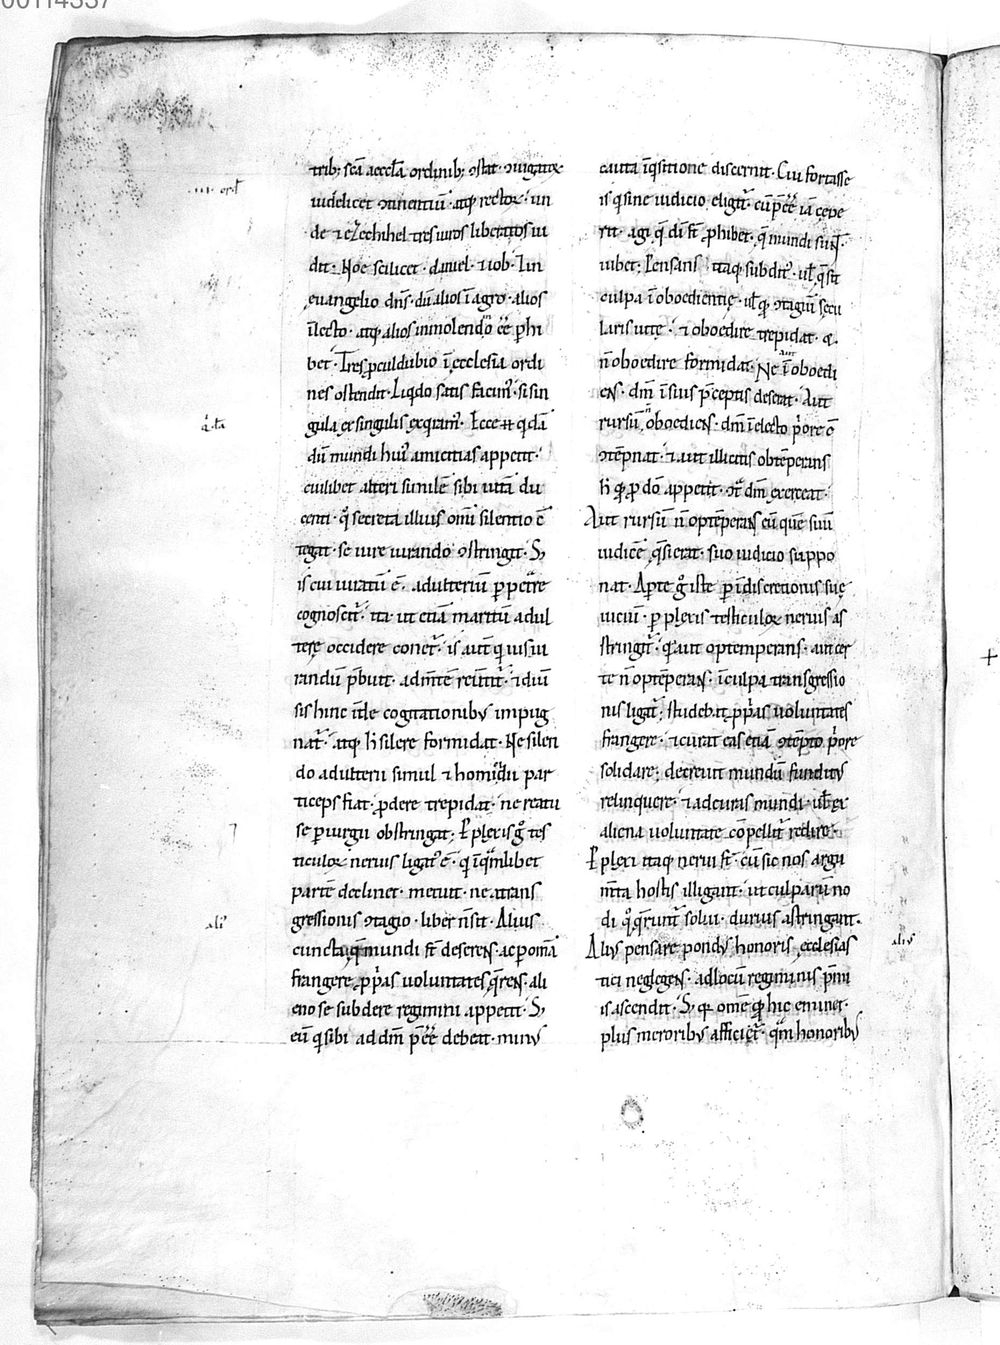 00114337
trib; scā æccl̄a ordinib; ↄstat· ↄiugatoꝝ
uidelicet ↄtinentiū· atq; rectoꝝ· un
de ⁊ ezechihel tres uiros liberatos ui
dit; Noe scilicet· daniel· ⁊ iob· In
euangelio dn̄s· dū alios ī agro· alios
ī lecto· atq; alios in molendino ēē phi
bet· Tres pculdubio ī ecclesia ordi
nes ostendit· Liq̇do satis facim᾽· si sin
gula ex singulis exq̇ram᾽· Ecce .n. q̇dā
dū mundi hui᾽ amicitias appetit·
cuilibet alteri similē sibi uitā du
centi· qđ secreta illius om̄i silentio ↄ
tegat· se iure iurando ↄstringit· S;
is cui iuratū ē· adulteriū ppetrare
cognoscit᾽· ita ut etiā maritū adul
teræ occidere conet᾽· is aut̄ qui iusiu
randū p̄buit· ad m̄tē reuertit᾽· ⁊ diu
sis hinc inde cogitationib; impug
nat᾽· atq; h̄ silere formidat· Ne silen
do adulterii simul ⁊ homicidii par
ticeps fiat· pdere trepidat· ne reatu
se piurgii obstringat; Pplexis gͦ tes
ticuloꝝ neruis ligat᾽ ē· qui ī quālibet
partē declinet· metuit· ne a trans
gressionis ↄtagio· liber n̄ sit· Alius
cuncta quæ mundi st̄ deserens· ac p om̄a
frangere pprias uoluntates q̄rens· ali
eno se subdere regimini appetit· S;
eū q̇ sibi ad dm̄ p̄ēē debeat· minus
cauta īq̇sitione discernit· Cui fortasse
is q̇ sine iudicio eligit᾽· cū p̄ēē iā cepe
rit· agi q̄ dī st̄ phibet· q̄ mundi sunt·
iubet; Pensans itaq; subdit᾽· uł q̄ sit
culpa ī oboedientiæ· uł q̄ ↄtagiū secu
laris uitæ· ⁊ oboedire trepidat· &
n̄ oboedire formidat· Ne aut īoboedi
ens· dm̄ ī suis p̄ceptis deserat· Aut
rursū n̄ oboediens· dm̄ ī electo p̄ore ↄ
ↄtēpnat· ⁊ aut illicitis obtēperans
h̄ quod p do᷑ appetit· ↄtᷓ dm̄ exerceat·
Aut rursū n̄ optēperans eū quē suū
iudicē q̄sierat· suo iudicio suppo
nat· Apte gͦ iste p īdiscretionis suæ
uiciū· p plexis testiculoꝝ neruis as
stringit᾽· quia aut optemperans· aut cer
te n̄ optēperans· ī culpa transgressio
nis ligat᾽; Studebat pprias uoluntates
frangere· ⁊ curat eas etiā ↄtēpto p̄ore
solidare; decreuit mundū funditus
relinquere· ⁊ ad curas mundi· uł ex
aliena uoluntate cōpellit᾽ redire·
Pplexi itaq; nerui st̄· cū sic nos argu
m̄ta hostis illigant· ut culparū no
di q᾽ q̄runt᾽ solui· durius astringant·
Alius pensare pondus honoris ecclesias
tici neglegens· ad locū regiminis p̄mi
is ascendit· S; quia om̄e quod hic eminet·
plus meroribus afficiet᾽· quā honoribus
.III. ord
q̇ta
ali᾽
alius